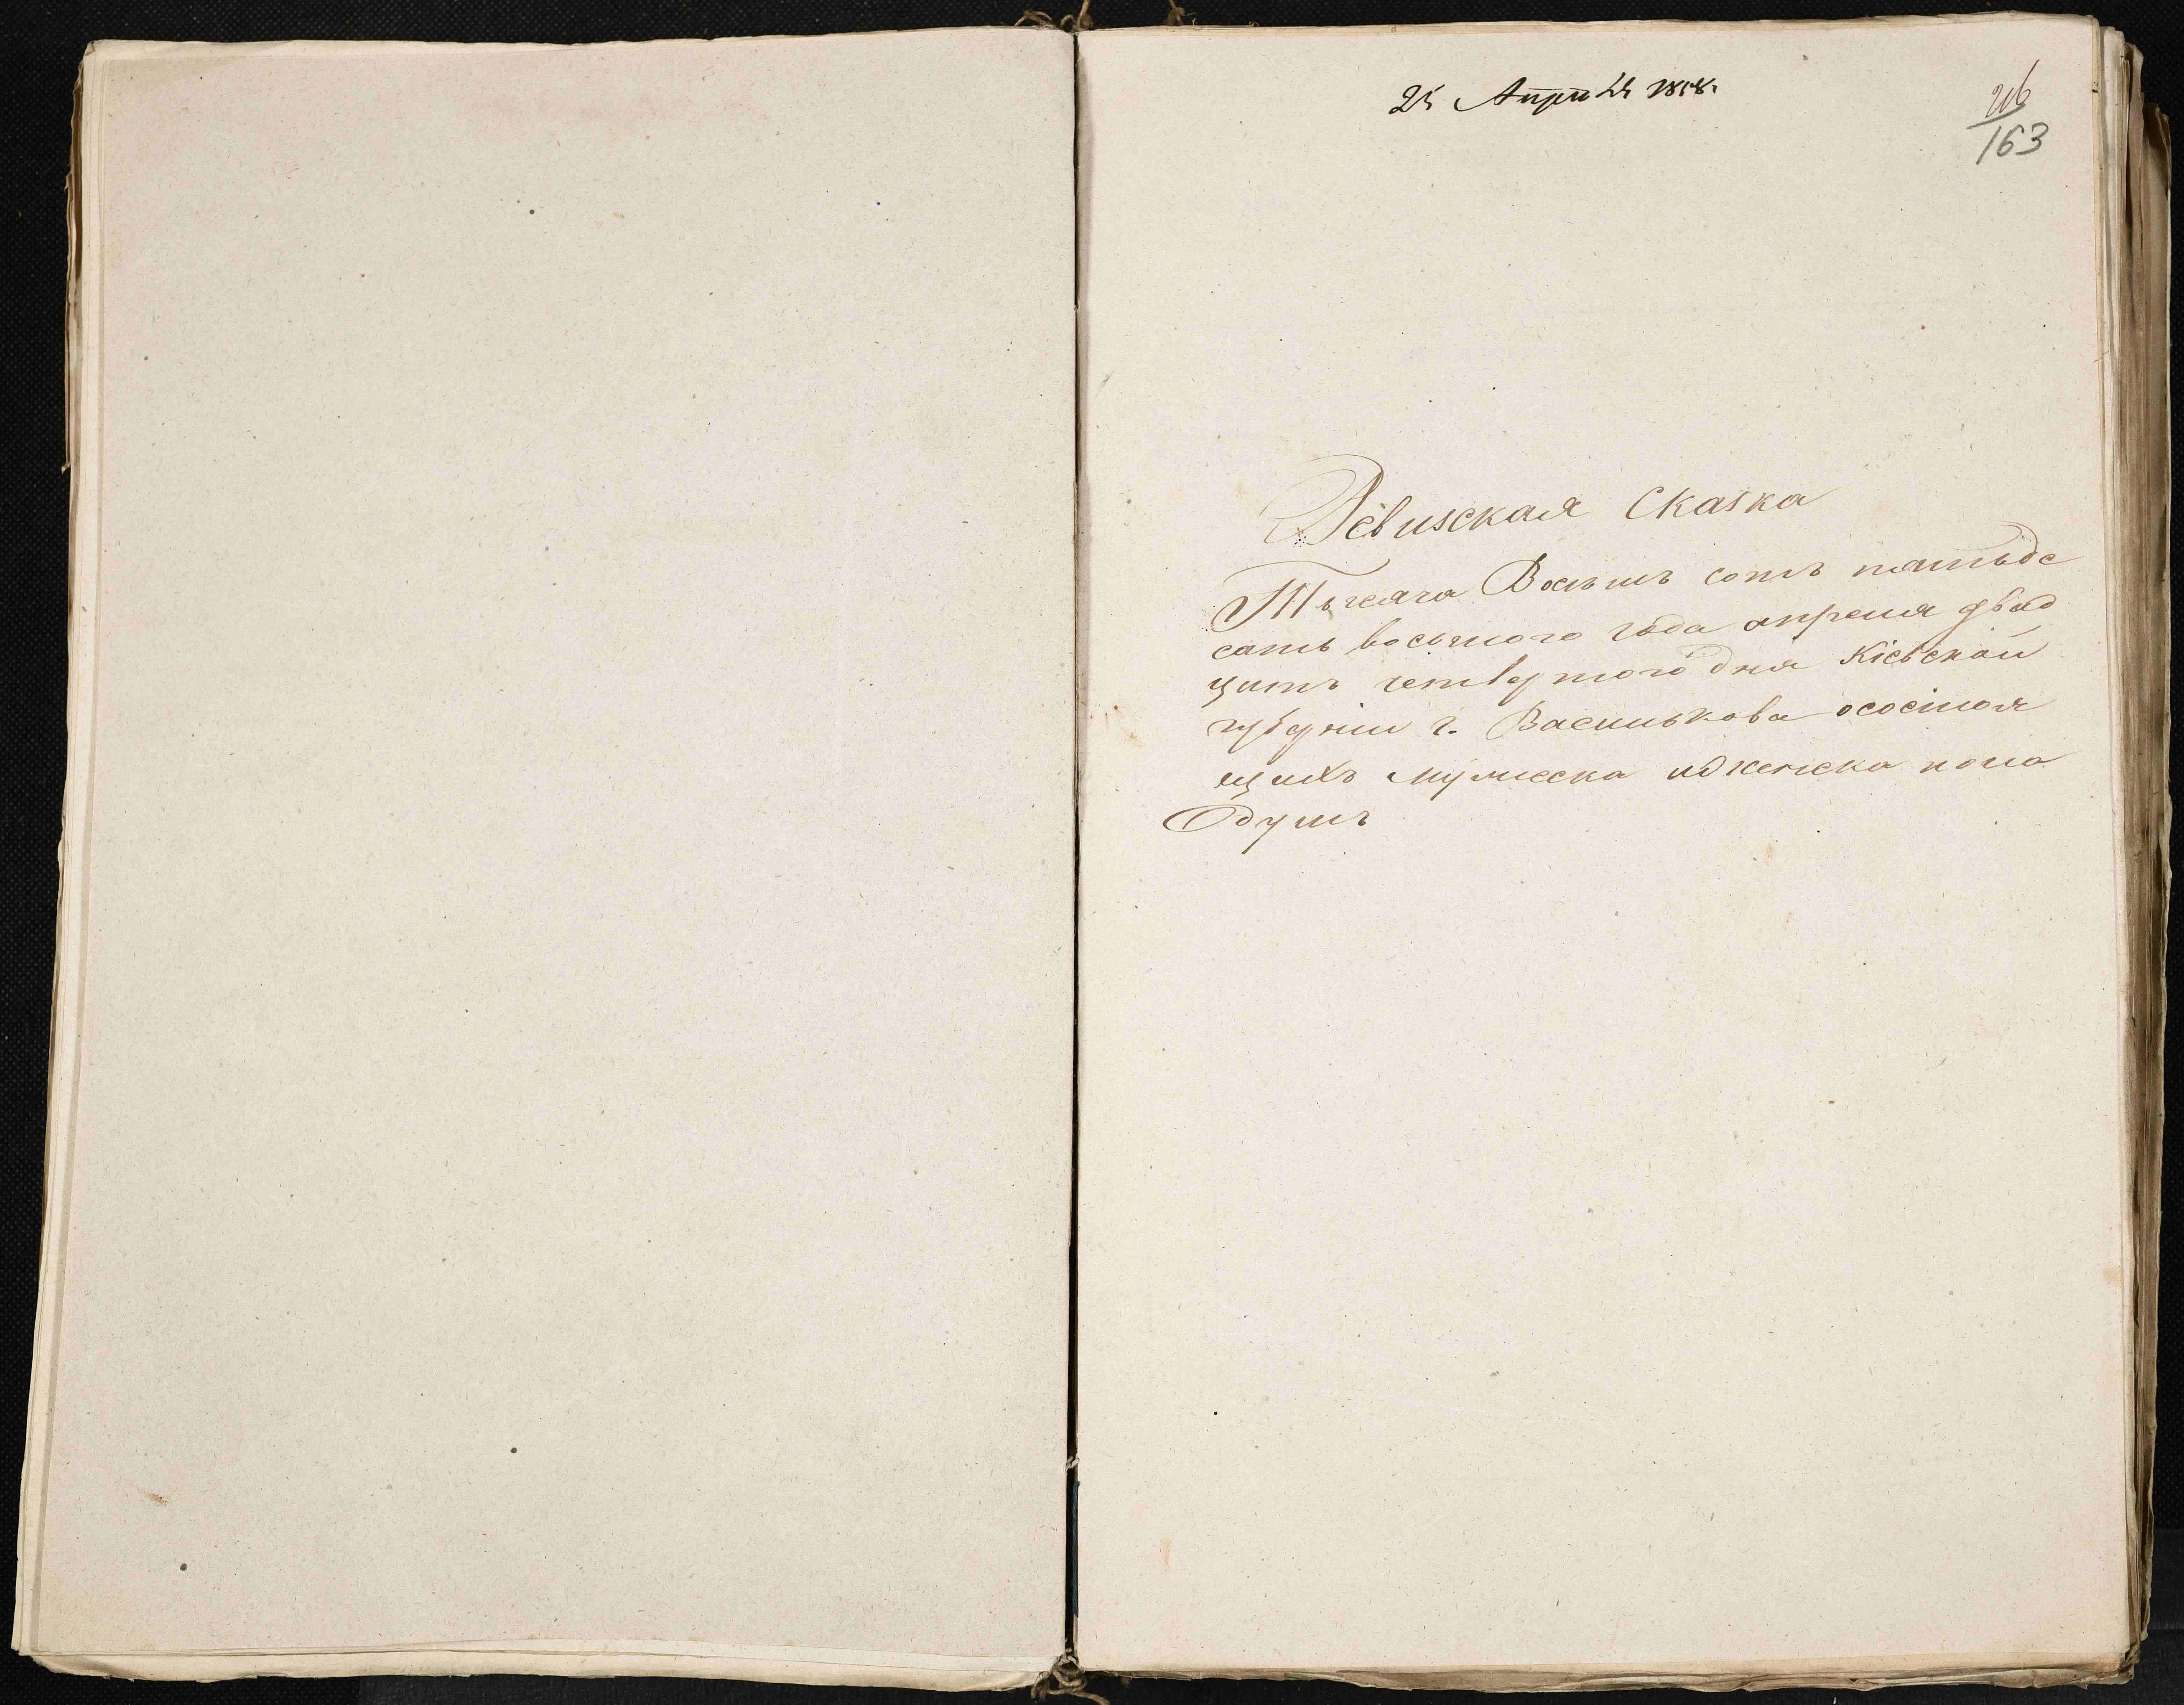 25 Апрѣля 1858.
216
163
Ревизская Сказка
Тысяча Восемъ сотъ пятьде
сятъ восьмого года апреля двад
цить четвертого дня Кіевской
губерніи г. Василькова осостоя
щихъ мужеска иженска пола
Одушъ